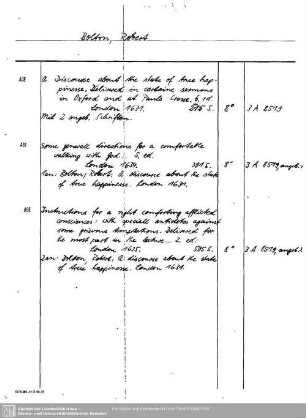 Bolton, Robert
AGB
A Discourse about the state of true hap-
pinesse, Delivered in certaine sermons
in Oxford and at Pauls Crosse. 6. ed.
London 1631. S. 8° 3 A 8519
Mit 2 angeb. Schriften.
AGB
Some generall directions for a comfortable
walking with God. 5. ed.
London 1638. S. 8° 3 A 8519, angeb. 1
an: Bolton, Robert: A discourse about the state
of true happinesse. London 1631.
AGB
Instructions for a right comforting afflicted
consciences: with speciall antidotes against
some grievous temptations. Delivered for
the most part in the lecture... 2. ed.
London 1635. S. 8° 3 A 8519, angeb. 2
an: Bolton, Robert, A discourse about the state
of true happinesse. London 1631.